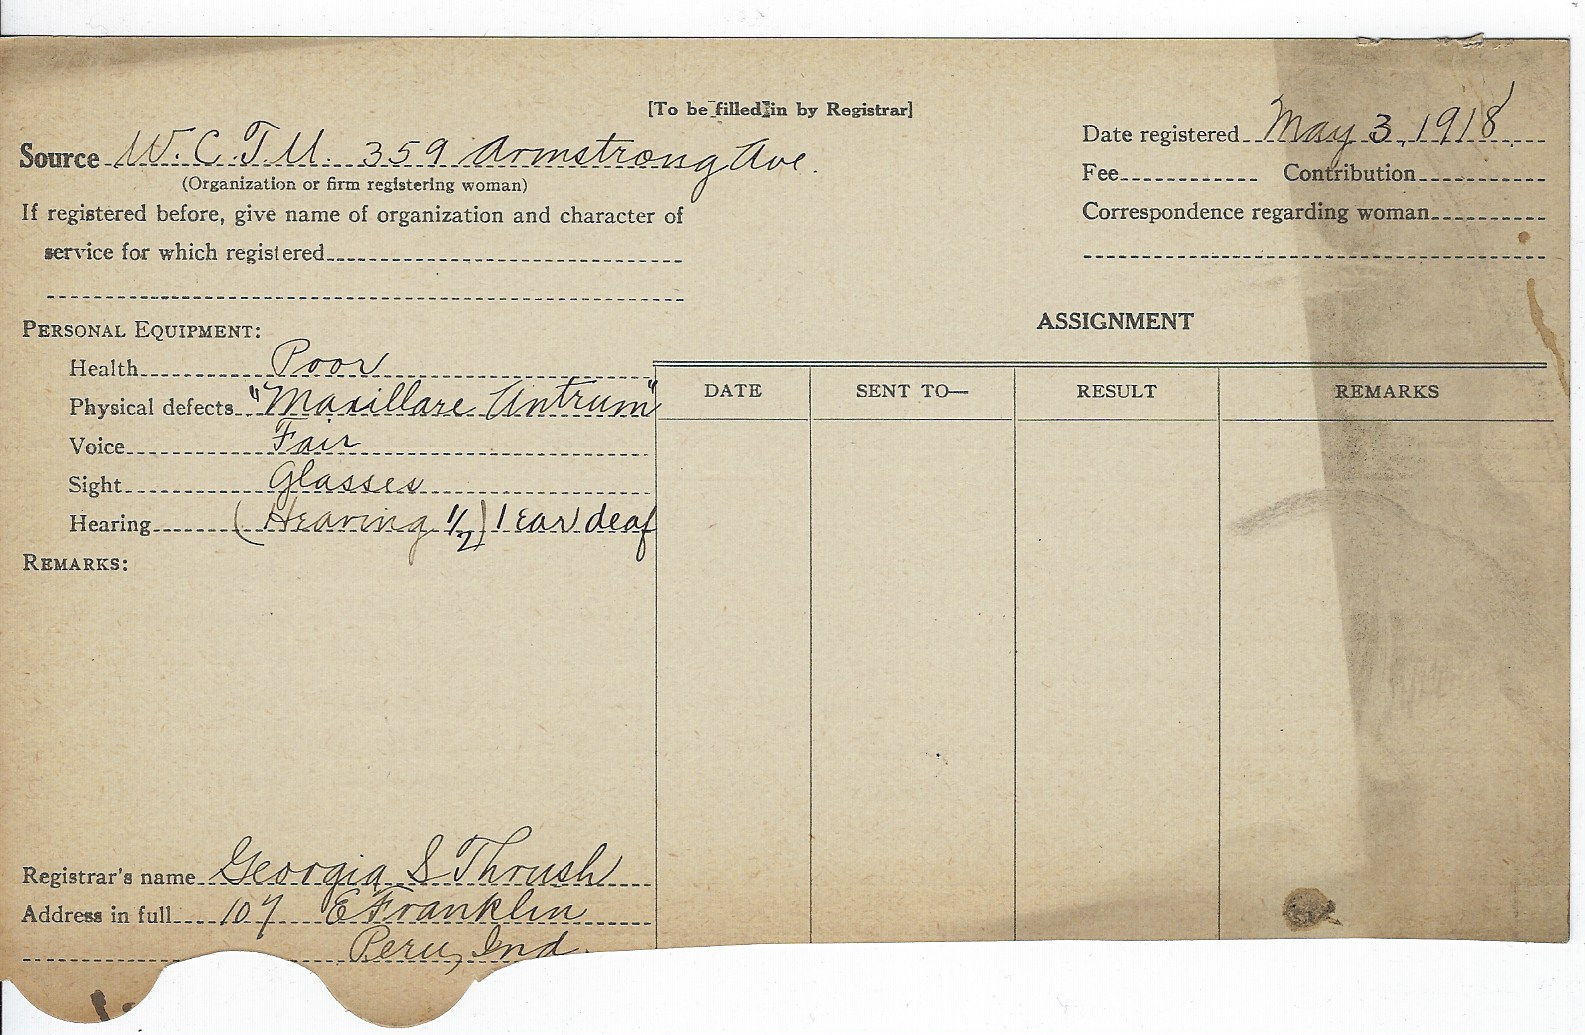 [To be filled in by Registrar]
Source W. C. T. U. 359 Armstrong Ave.
(Organization or firm registering woman)
If registered before, give name of organization and character of
service for which registered
Date registered May 3, 1918
Fee Contribution
Correspondence regarding woman
PERSONAL EQUIPMENT:
Health Poor
Physical defects "Maxillare Antrum"
Voice Fair
Sight Glasses
Hearing (Hearing 1/2) 1 ear deaf
REMARKS:
ASSIGNMENT
DATE SENT TO— RESULT REMARKS
Registrar's name Georgia S Thrush
Address in full 107 E Franklin
Peru, Ind.